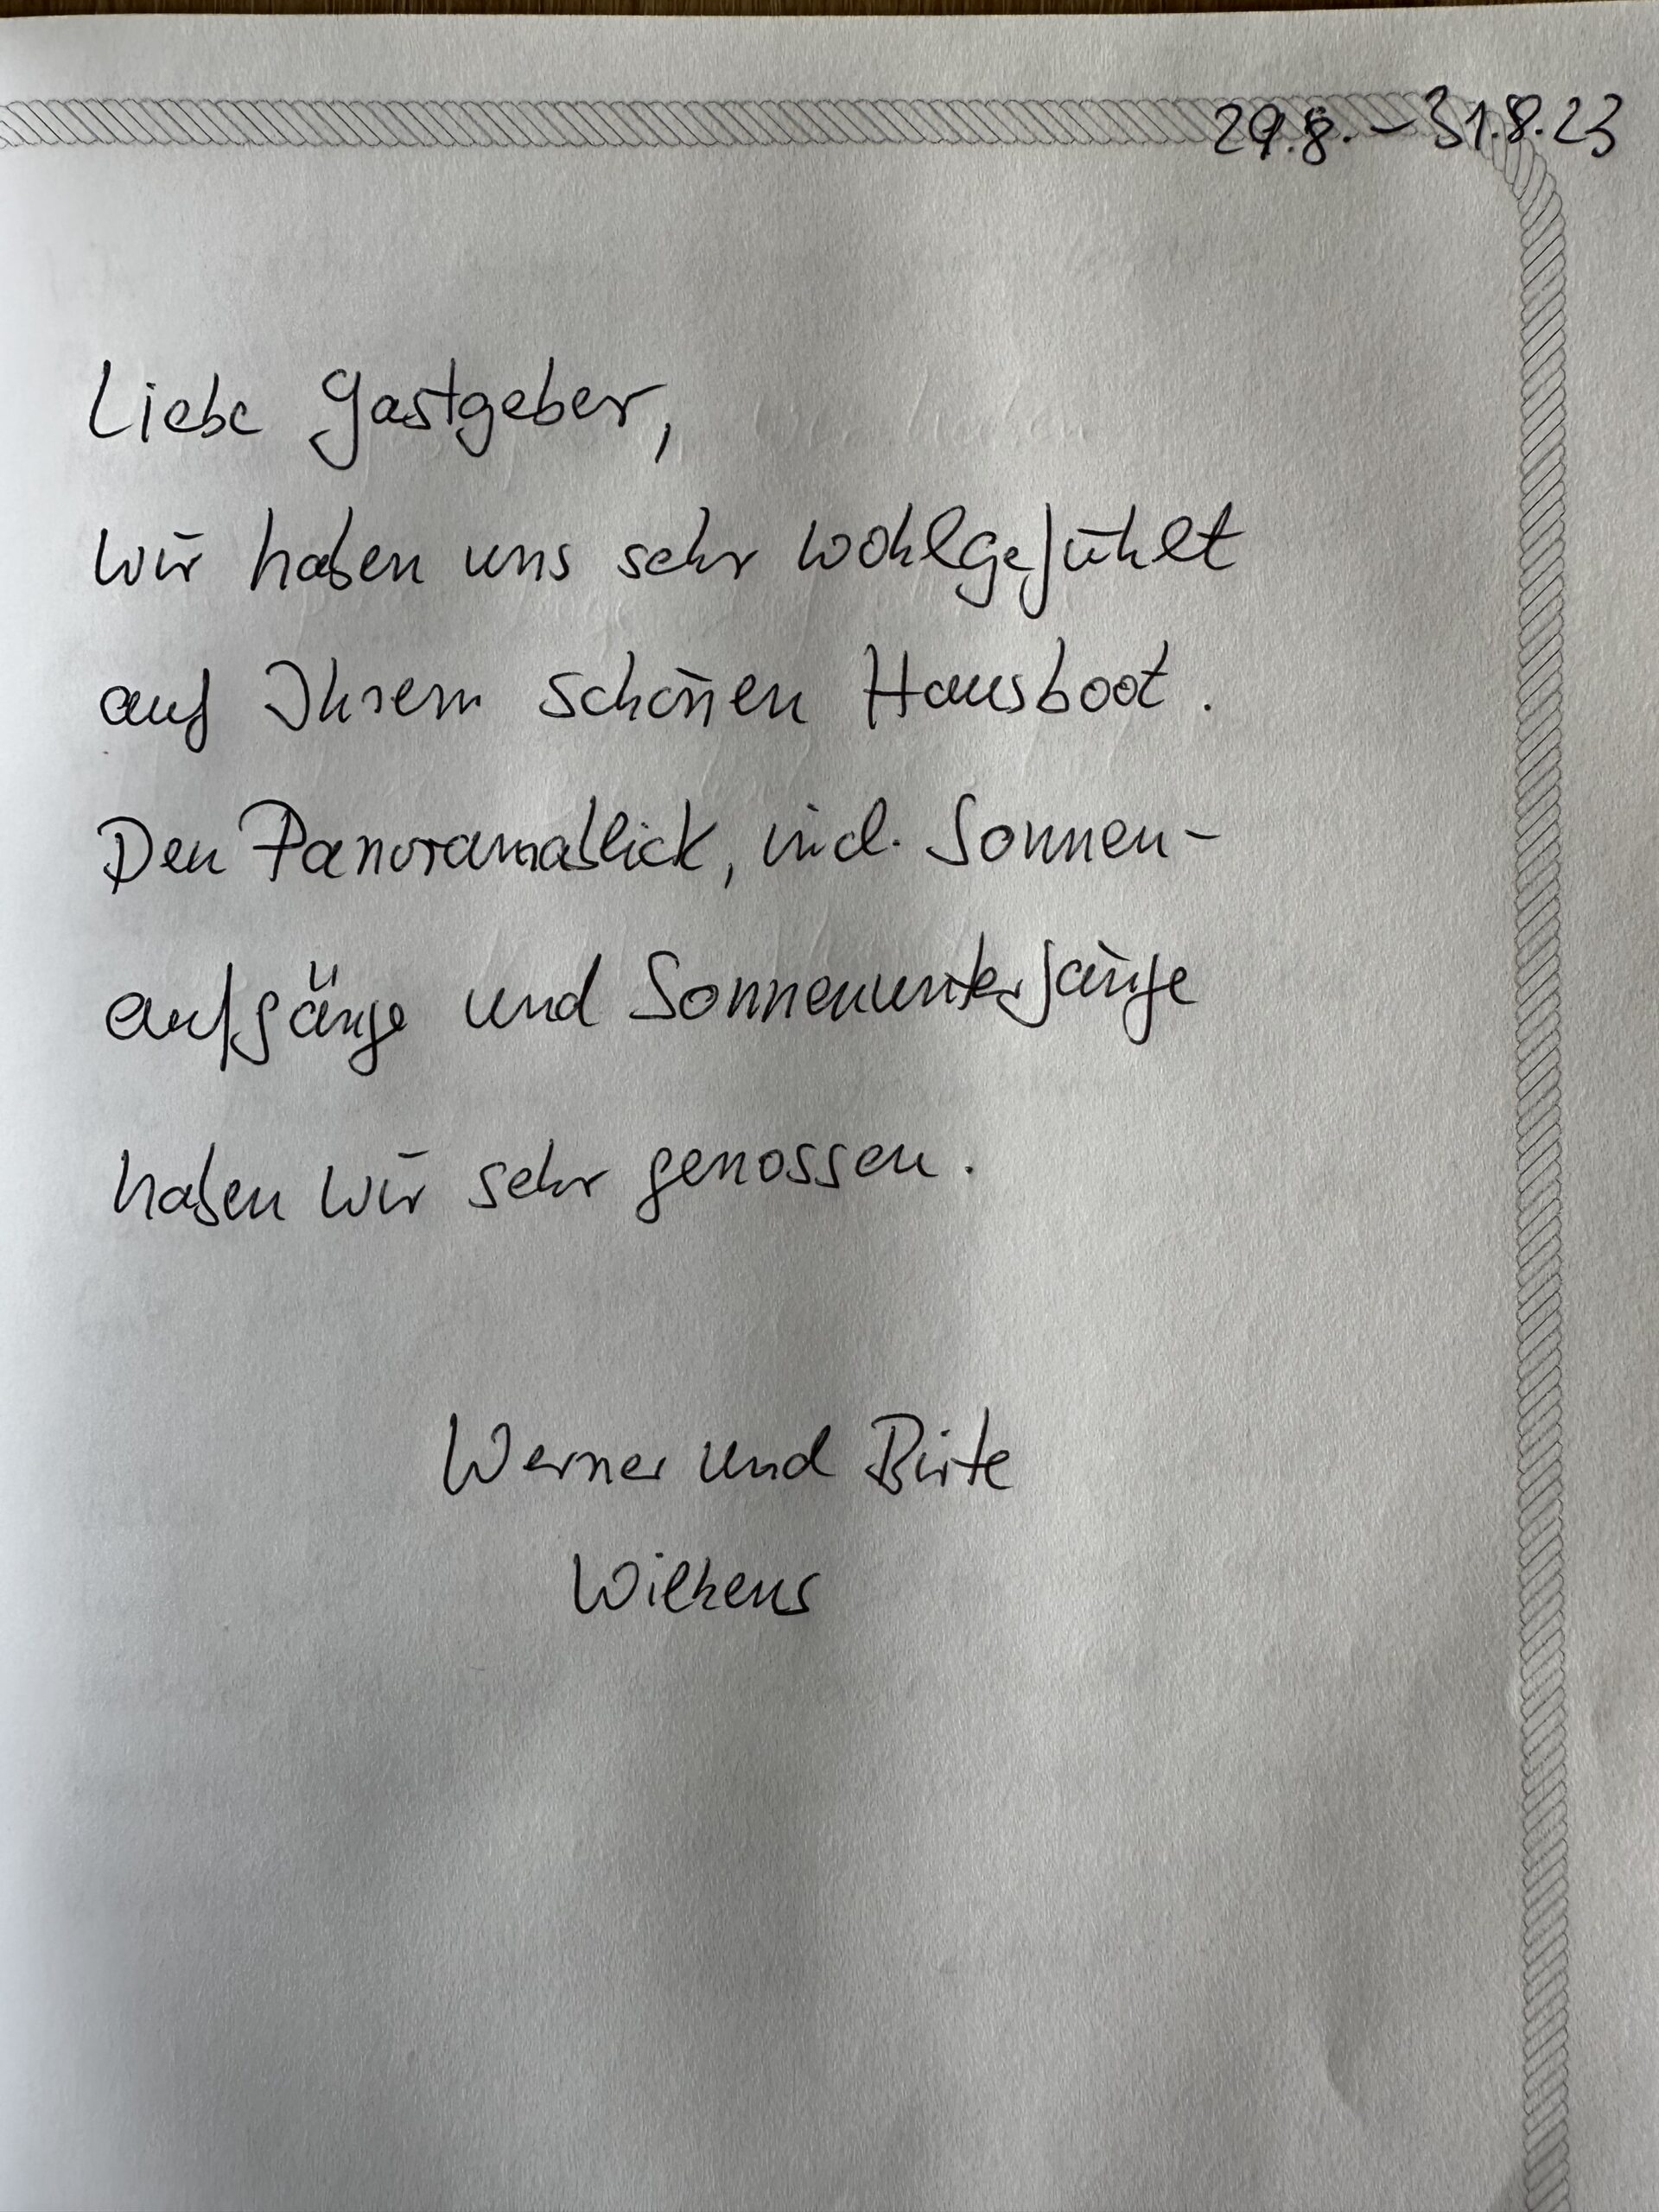 29.8. – 31.8.23
Liebe Gastgeber,
wir haben uns sehr wohlgefühlt
auf Ihrem schönen Hausboot.
Den Panoramablick, incl. Sonnen-
aufgänge und Sonnenuntergänge
haben wir sehr genossen.
Werner und Birte
Wilkens